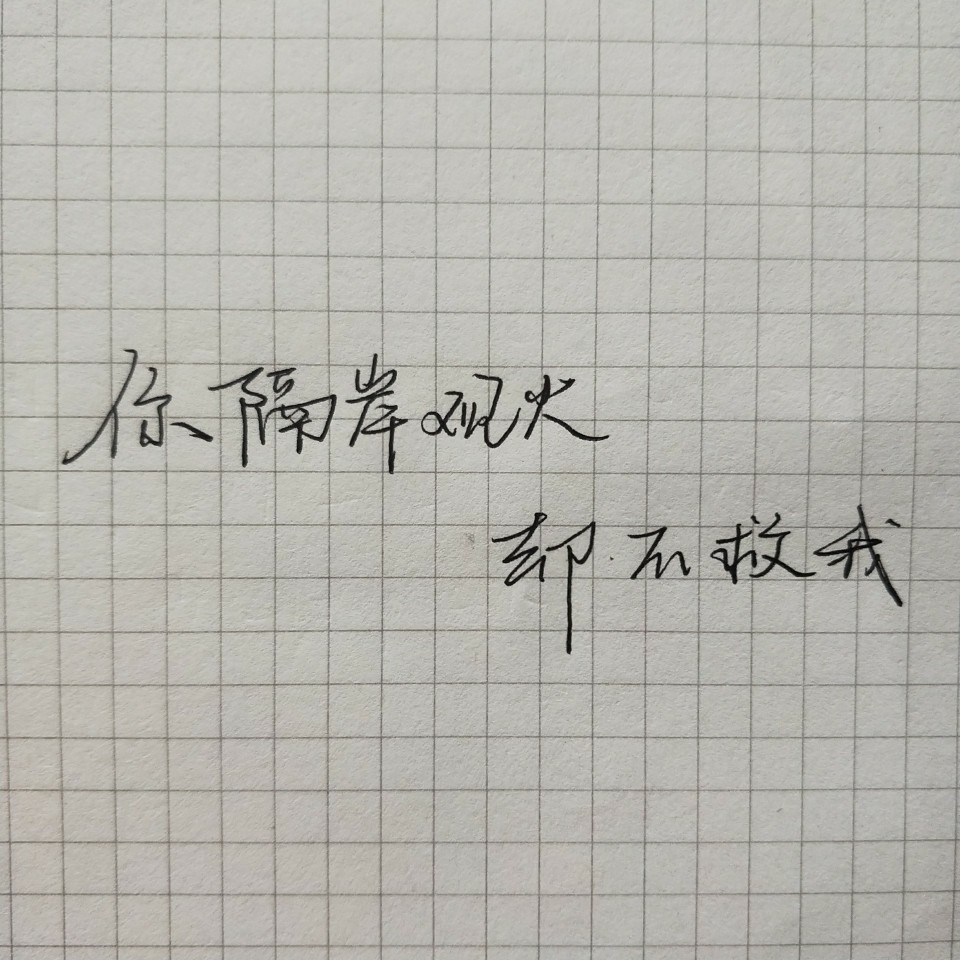 你隔岸观火
却不救我